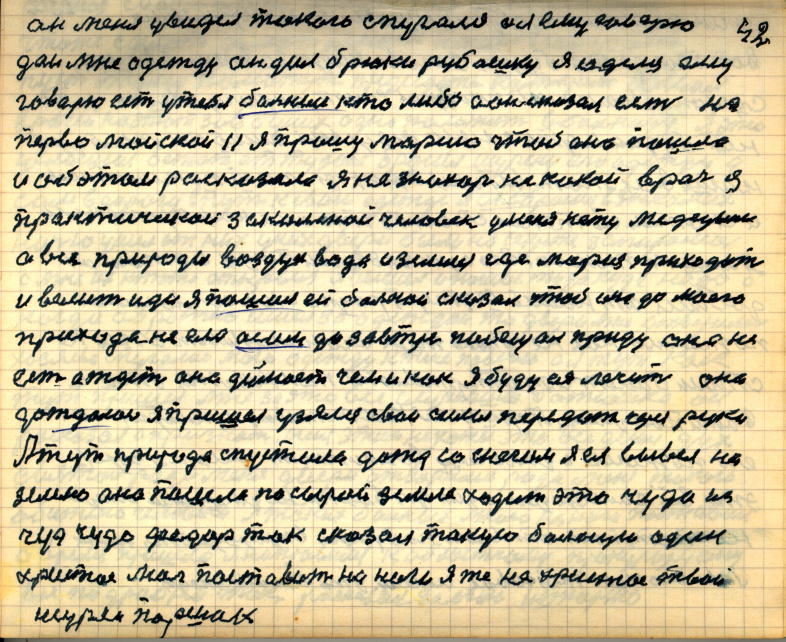 он меня увидел такого спугался а я ему говорю 42
дай мне одежду он дал брюки рубашку я оделся ему
говорю ест утебя больные кто либо а он сказал ест на
перво майской 11 я прошу марию чтоб она пошла
и об этом расказала я не знахор не какой врач я
практической закаленой человек уменя нету медецыны
а вся природа воздух вода и земля где мария приходит
и велит иди я пошол ей больной сказал чтоб она до моего
прихода не ела до завтре пообещал приду она не
ест а ждет она думает чем и как я буду ея лечит она
дождалас я пришол узялся свои силы передат чрез руки
А тут природа спустила дожд со снегом я ея вывел на
землю она пошла по сырой земле ходит это чудо из
чуд чудо федор так сказал такую больную один
христос мог поставит на ноги я же не христос твой
шуряк паршак